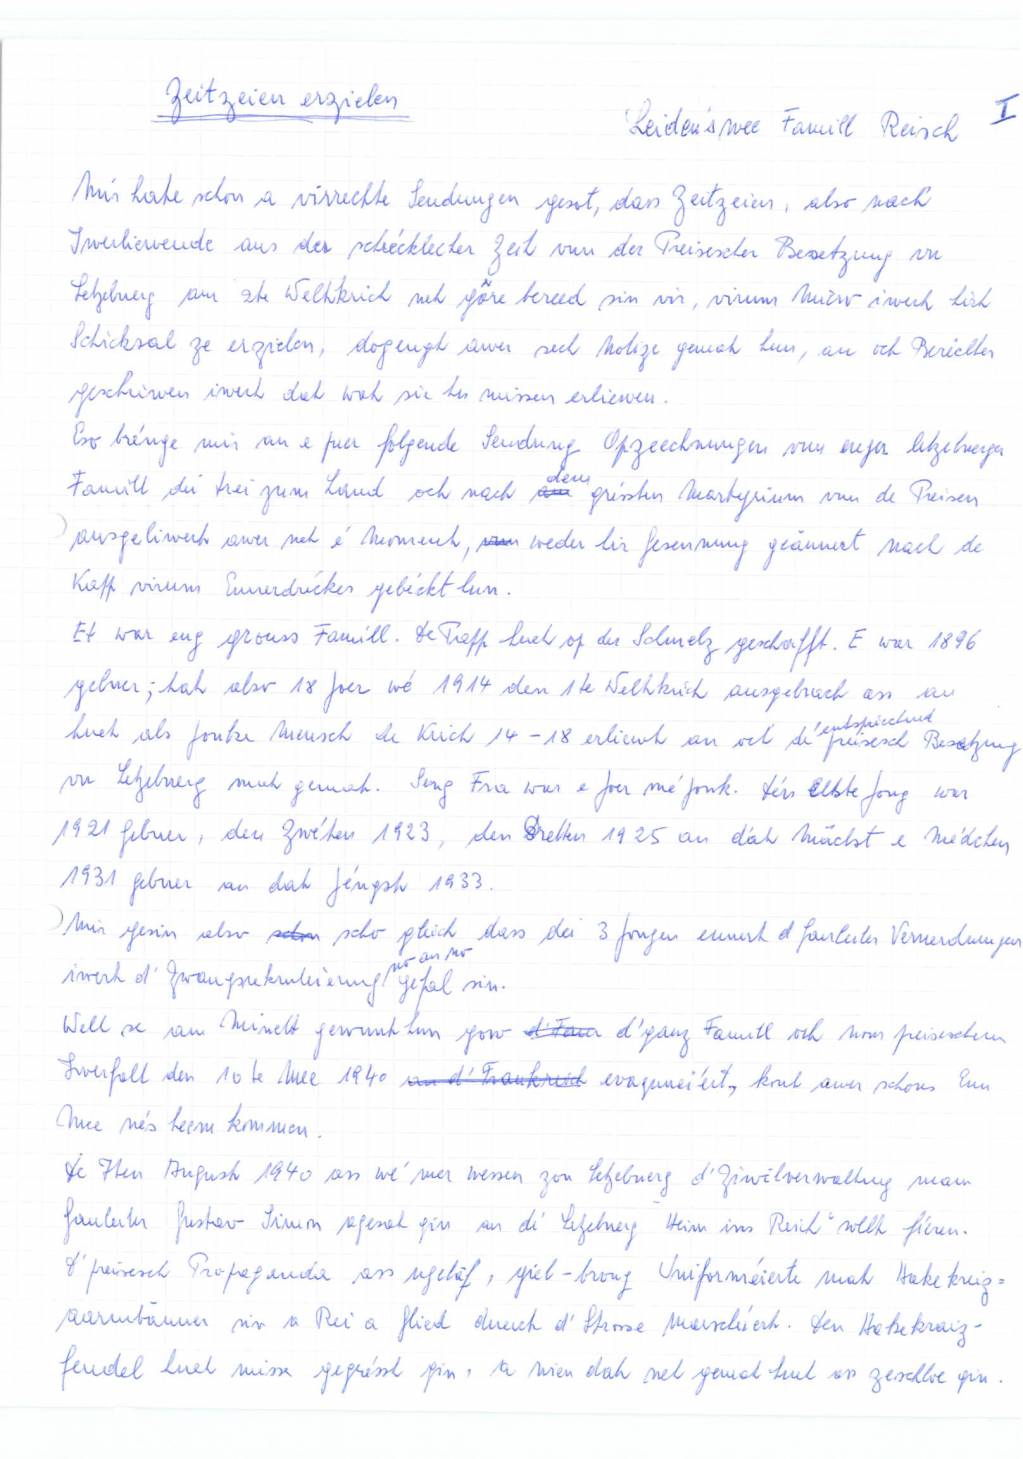 Zeitzeien erzielen
Leiden'swee Famill Reisch I
Mir hate schon a virrechte Sendungen gesot, dass Zeitzeien, also nach
Iwerliewende aus der schrécklecher Zeit vun der Preisescher Besetzung vu
Letzebuerg am 2te Weltkrich net gäre bereed sin vir, virum Mikro iwert hirt
Schicksal ze erzielen, dogengt awer sech Notize gemat hun, an och Berichter
geschriwen iwert dat wat sie hu missen erliewen.
Eso brénge mir an e puer folgende Sendung Opzeechnungen vun enger letzebuerger
Famill déi trei zum Land och nach dem gréssten Martyrium vun de Preisen
ausgeliwert awer net é Moment, weder hir Gesennung geännert nach de
Kapp virum Ennerdrécker gebéckt hun.
Et war eng grouss Famill. De Papp huet op der Schmelz geschafft. E war 1896
gebuer; hat also 18 Joer wé 1914 den 1te Weltkrich ausgebrach ass an
huet als jonke Mensch de Krich 14-18 erliewt an och di entspriechend preisesch Besatzung
vu Letzebuerg mat gemat. Seng Fra war e Joer mé jonk. Hirs Elste Jong war
1921 gebuer, den Zwéten 1923, den Dretten 1925 an dat Nächst e Médchen
1931 gebuer an dat Jéngst 1933.
Mir gesin also scho gleich dass déi 3 Jongen ennert d'Gauleiter Veruerdnungen
iwert d'Zwangsrekrutéierung no an no gefal sin.
Well se am Minett gewunnt hun gow d'ganz Famill och nom preiseschen
Iwerfall den 10te Mee 1940 evaquéiert, kont awer schons Enn
Mee nés heem kommen.
De 7ten August 1940 ass wé mer wessen zou Letzebuerg d'Ziwilverwaltung mam
Gauleiter Gustav Simon agesat gin an di Letzebuerg "Heim ins Reich" sollt fieren.
D'preisesch Propaganda ass ugelaf, giel-brong Uniforméierte mat Hakekreiz=
aarmbänner sin a Rei a Glied duerch d'Strosse marschéiert. Den Hakekraiz-
fendel huet misse gegrésst gin, a wien dat net gemat huet ass zeschloe gin.